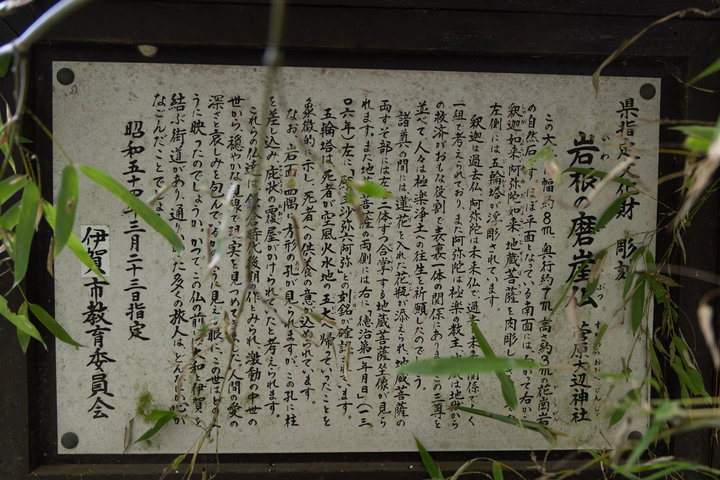 県指定文化財 彫刻
岩根の磨崖仏 菅原大辺神社
この大 幅約8m、奥行約7m、高さ約3mの花崗岩
の自然石 ほぼ平面となっている南面には、向かって右か
釈迦如来、阿弥陀如来、地蔵菩薩を肉彫し
左側には五輪塔が浮彫されています。
釈迦は過去仏、阿弥陀は未来仏で過 未 関係で
一組で考えられており、また阿弥陀は極楽の教主、 蔵は地獄から
の救済がおもな役割と表裏一体の関係にあ この三尊を
並べて、人々は極楽浄土への往生を祈願したので う。
諸尊の間には、蓮花を入れた花瓶が添えられ、地蔵菩薩の
両すそ部には、二体ずつ合掌する地蔵菩薩坐像が見ら
れます。また地 菩薩の両側には右に「徳治第一年月日」(一三
〇六年)、左に「 沙弥阿弥」との刻銘が確認 ます。
五輪塔は死者が空風火水地の五大に帰っていったことを
象徴的に示し、死者への供養の意が込められています。
なお、岩面の四隅に方形の孔が見られますが、この孔に柱
を差し込み、庇状の覆屋がかけられていたと考えられます。
これらの仏達は鎌倉時代後期の作とみられ、激動の中世の
世から、穏やかな 現実を見つめ 人間の愛の
深さと哀しみを包んで に見え 眼に、この世はどのよ
うに映ったのでしょうか。かつてこの仏の前 大和と伊賀を
結ぶ街道があり、通り った多くの旅人はどん 心が
なごんだことでしょ
昭和五十四年三月二十三日指定
伊賀市教育委員会